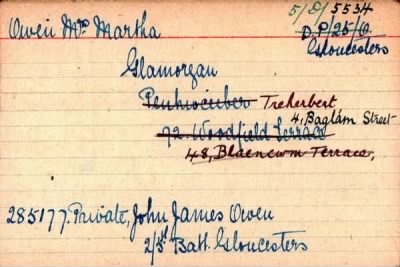 Owen Mrs Martha
5/D/5534
D.P/25/O.
Gloucesters
Glamorgan
Penhwceiber Treherbert
4, Baglam Street
72 Woodfield Terrace
48, Blaencwm Terrace,
285177. Private, John James Owen
2/5th Batt. Gloucesters